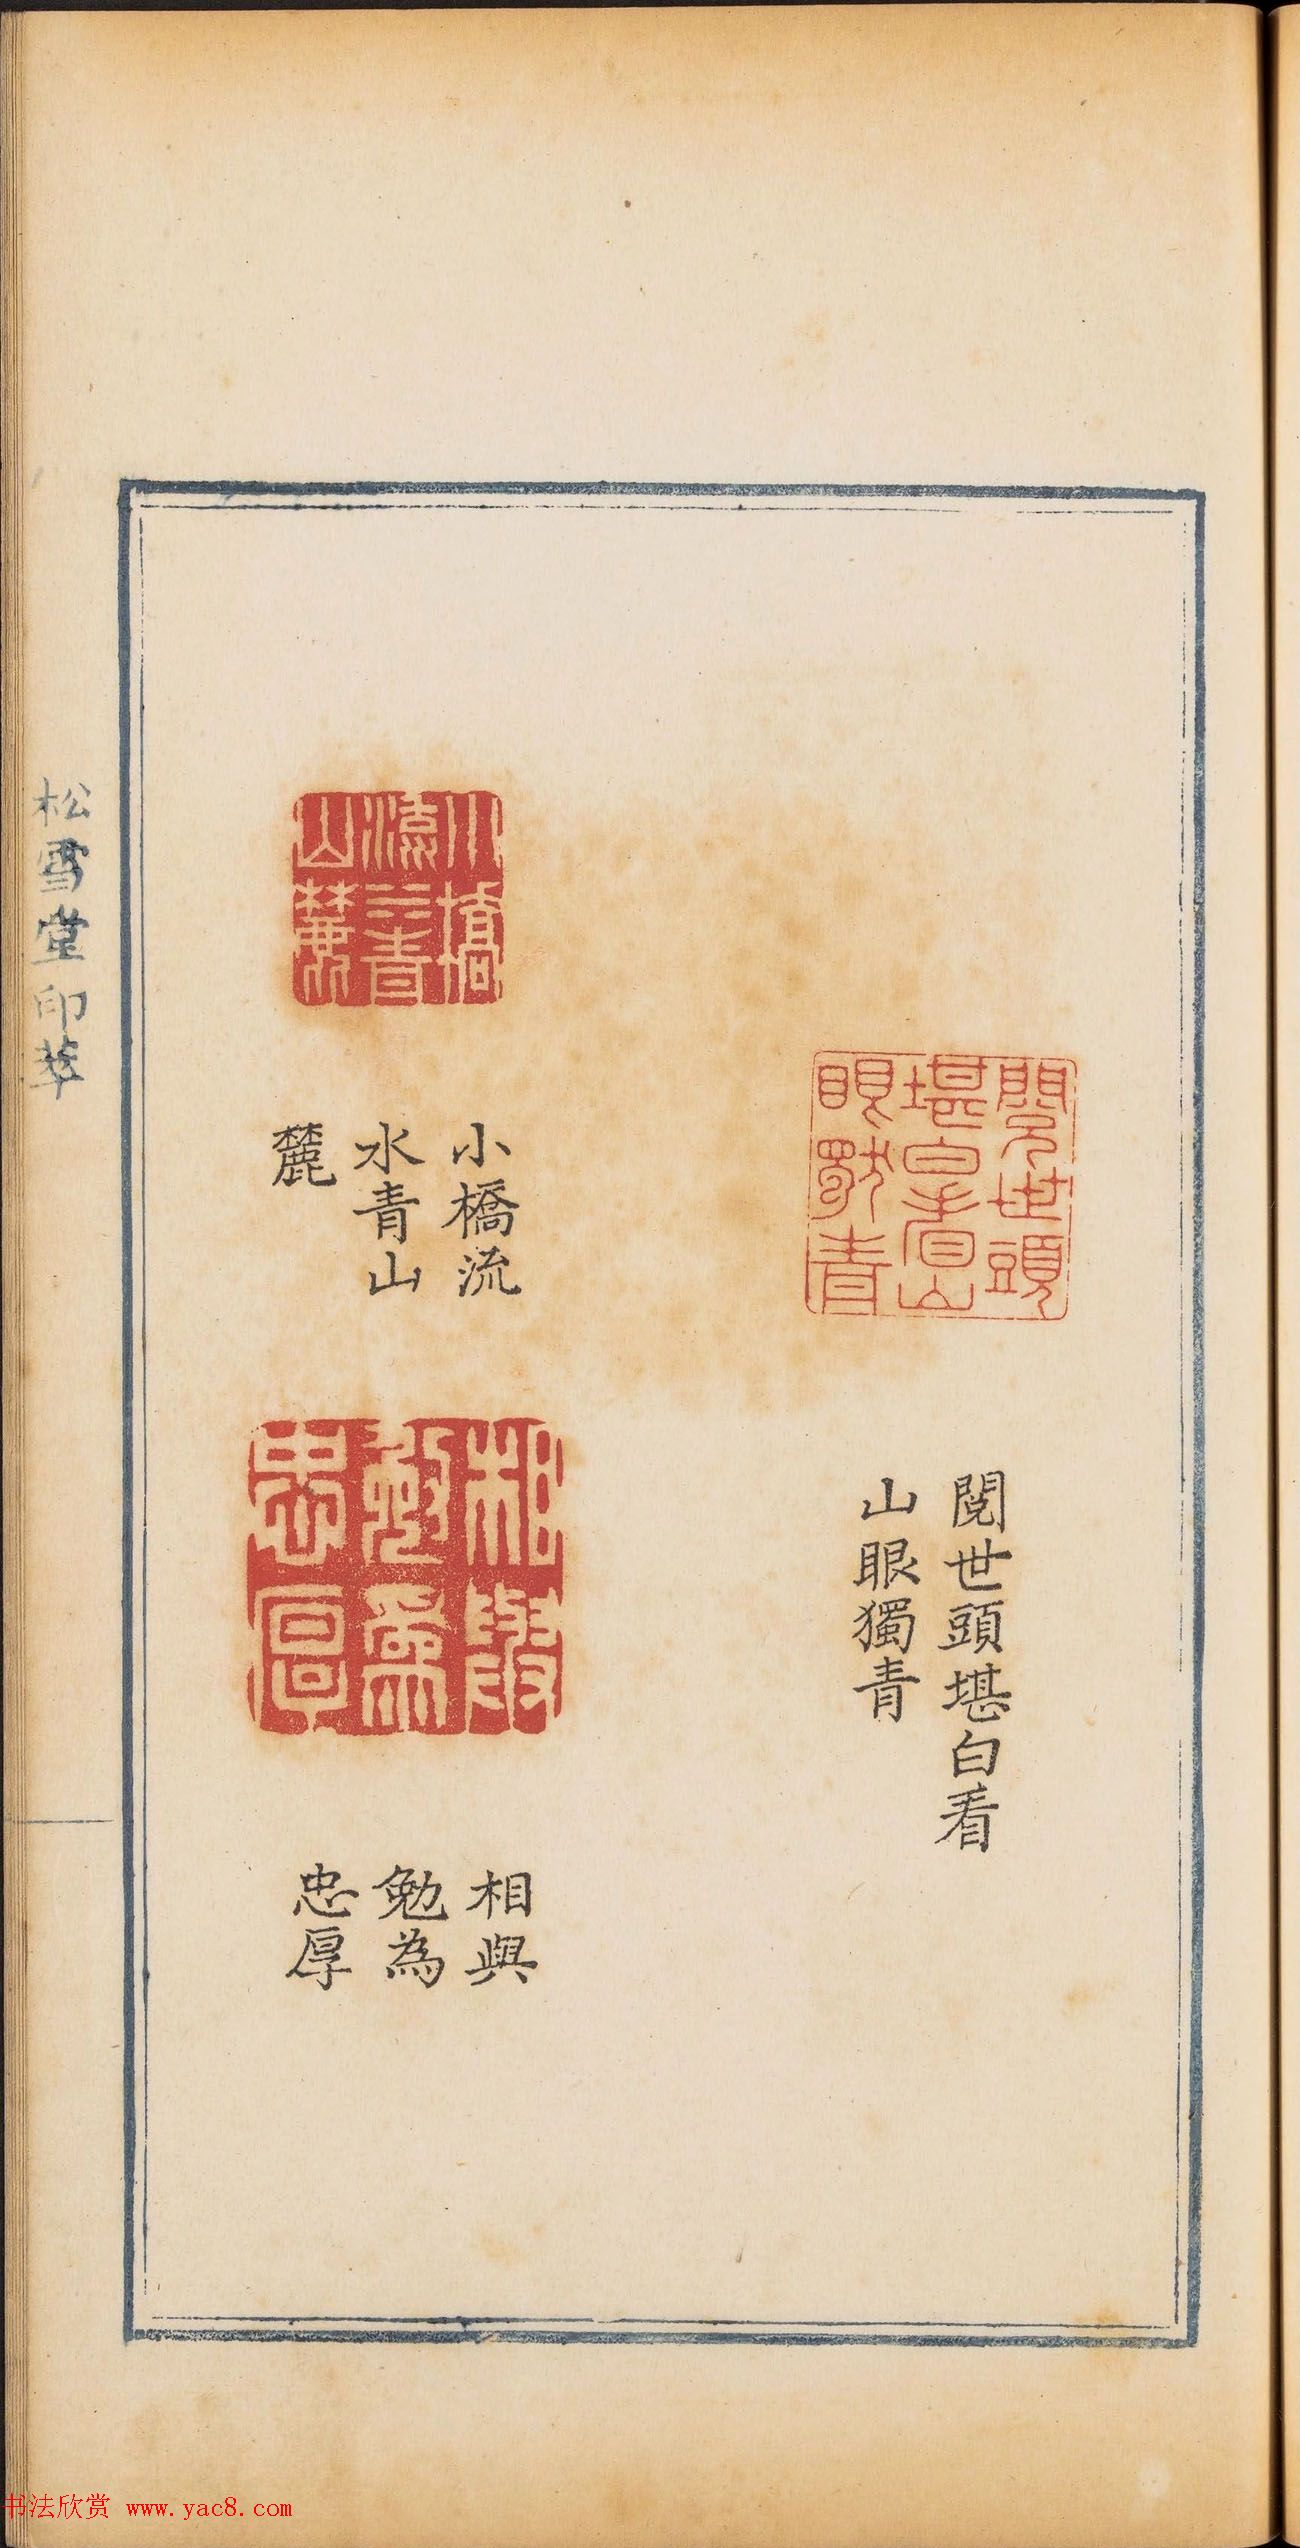 閱世頭堪白看
山眼獨青
小橋流
水青山
麓
相與
勉為
忠厚
松雪堂印萃
閱世頭
堪白看山
眼獨青
小橋
流水青
山麓
相與
勉為
忠厚
书法欣赏 www.yac8.com